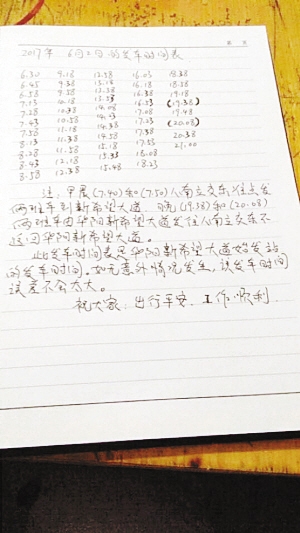 2017年 6月2日 的发车时间表
6.30 9.18 12.58 16.03 18.38
6.45 9.38 13.18 16.18 18.58
6.58 9.58 13.38 16.38 19.18
7.13 10.18 13.53 16.53 (19.38)
7.28 10.38 14.08 17.08 19.48
7.43 10.58 14.23 17.23 (20.08)
7.58 11.18 14.38 17.38 20.38
8.13 11.38 14.58 17.53 21.00
8.28 11.58 15.18 18.08
8.43 12.18 15.33 18.23
8.58 12.38 15.48
注：早晨(7.40)和(7.50)从南立交东往点发
两班车到新希望大道。晚(19.38)和(20.08)
两班车由华阳新希望大道发往南立交东不
返回华阳新希望大道。
此发车时间表是华阳新希望大道始发站
的发车时间，如无意外情况发生，该发车时间
误差不会太大。
祝大家：出行平安，工作顺利